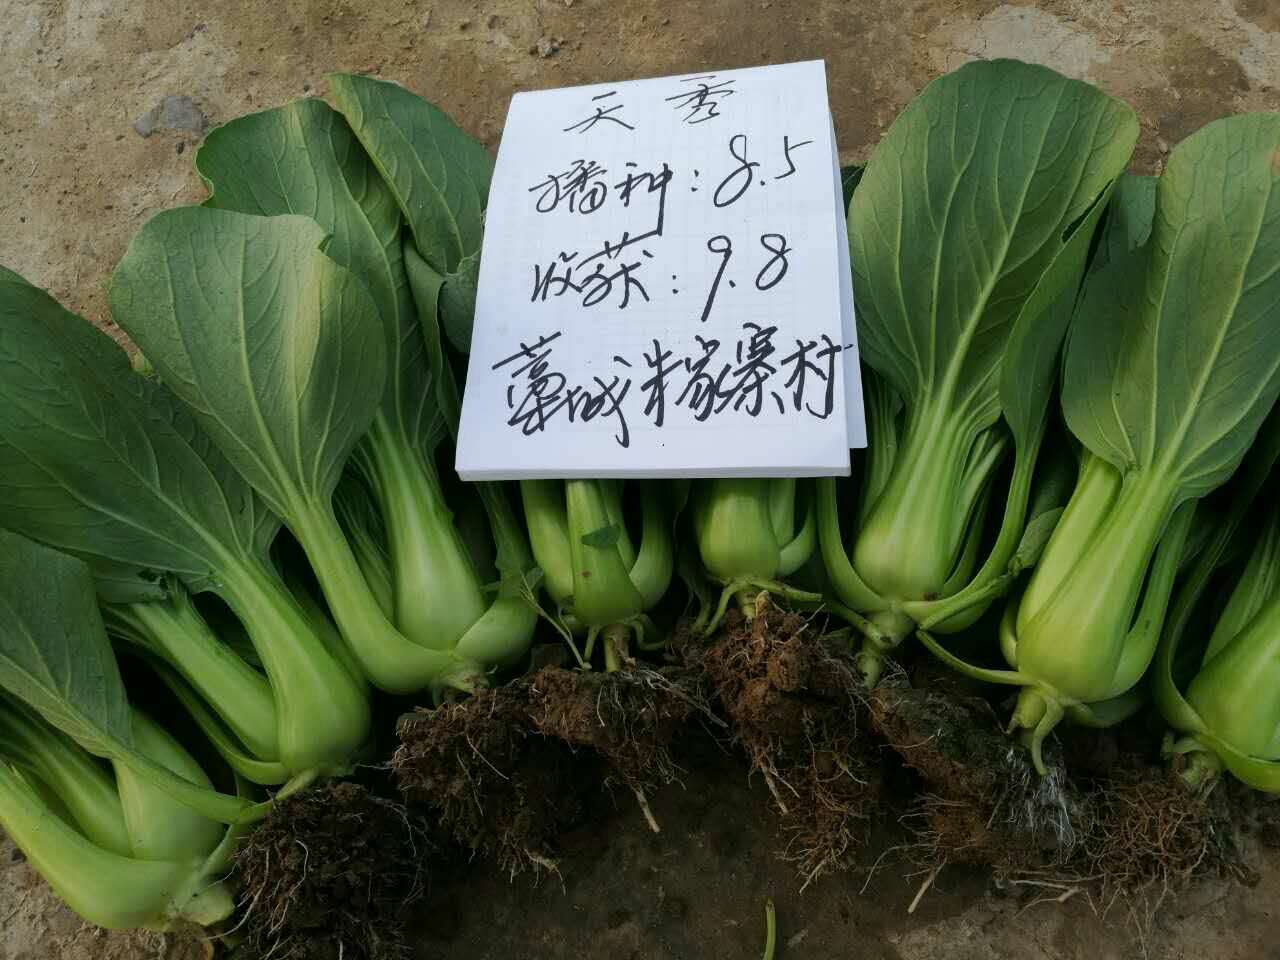 天秀
播种：8.5
收获：9.8
藁城朱家寨村